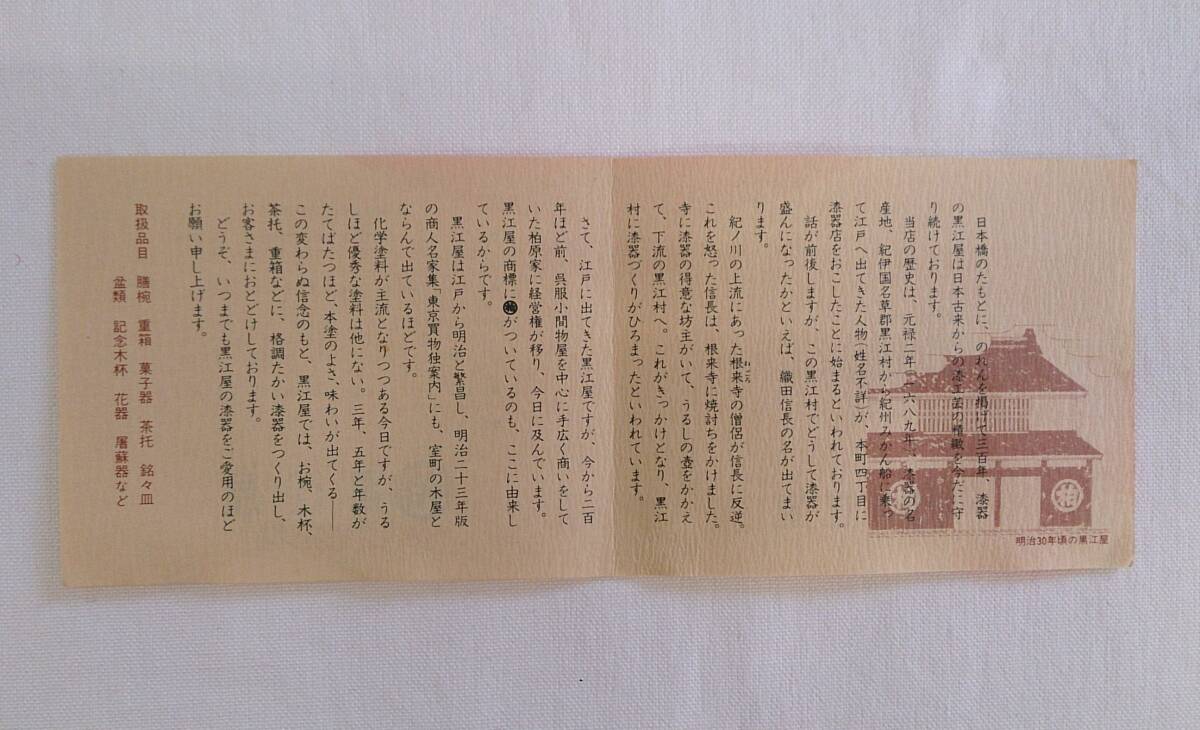 日本橋のたもとに、のれんを掲げて三百年、漆器
の黒江屋は日本古来からの漆工芸の精緻を今だに守
り続けております。
当店の歴史は、元禄二年(一六八九年、漆器の名
産地、紀伊国名草郡黒江村から紀州みかん船に乗っ
て江戸へ出てきた人物(姓名不詳)が、本町四丁目に
漆器店をおこしたことに始まるといわれております。
話が前後しますが、この黒江村でどうして漆器が
盛んになったかといえば、織田信長の名が出てまい
ります。
紀ノ川の上流にあった根来寺の僧侶が信長に反逆。
ねごろ
これを怒った信長は、根来寺に焼討ちをかけました。
寺に漆器の得意な坊主がいて、うるしの壺をかかえ
て、下流の黒江村へ。これがきっかけとなり、黒江
村に漆器づくりがひろまったといわれています。
柏
明治30年頃の黒江屋
さて、江戸に出てきた黒江屋ですが、今から二百
年ほど前、呉服小間物屋を中心に手広く商いをして
いた柏原家に経営権が移り、今日に及んでいます。
黒江屋の商標に㊒がついているのも、ここに由来し
ているからです。
黒江屋は江戸から明治と繁昌し、明治二十三年版
の商人名家集「東京買物独案内」にも、室町の木屋と
ならんで出ているほどです。
化学塗料が主流となりつつある今日ですが、うる
しほど優秀な塗料は他にない。三年、五年と年数が
たてばたつほど、本塗のよさ、味わいが出てくる——
この変わらぬ信念のもと、黒江屋では、お椀、木杯、
茶托、重箱などに、格調たかい漆器をつくり出し、
お客さまにおとどけしております。
どうぞ、いつまでも黒江屋の漆器をご愛用のほど
お願い申し上げます。
取扱品目 膳椀 重箱 菓子器 茶托 銘々皿
盆類 記念木杯 花器 屠蘇器など